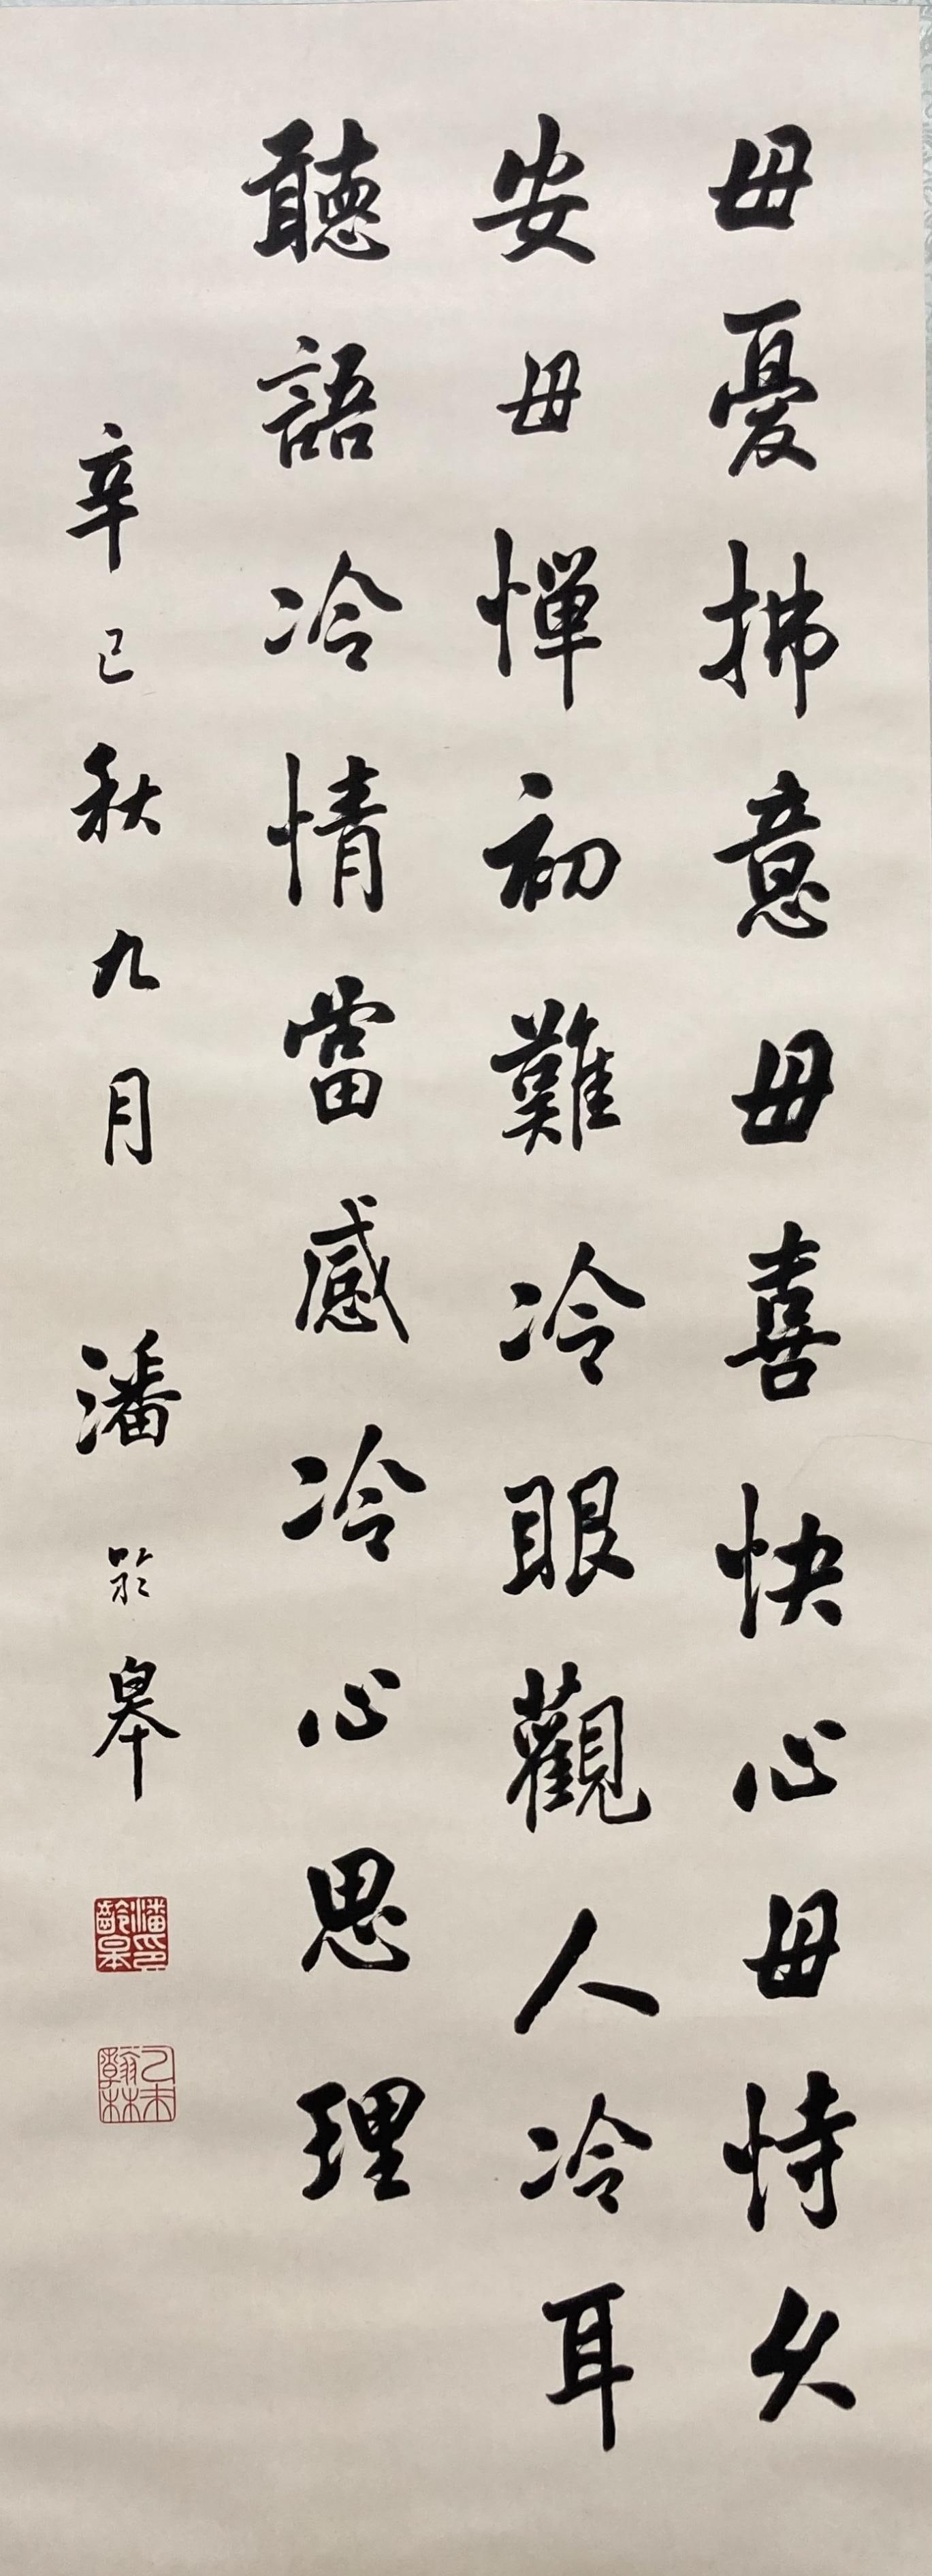 毋憂拂意毋喜快心毋恃久
安毋憚初難冷眼觀人冷耳
聽語冷情當感冷心思理
辛巳秋九月 潘齡皋
潘齡皋印
乙未翰林